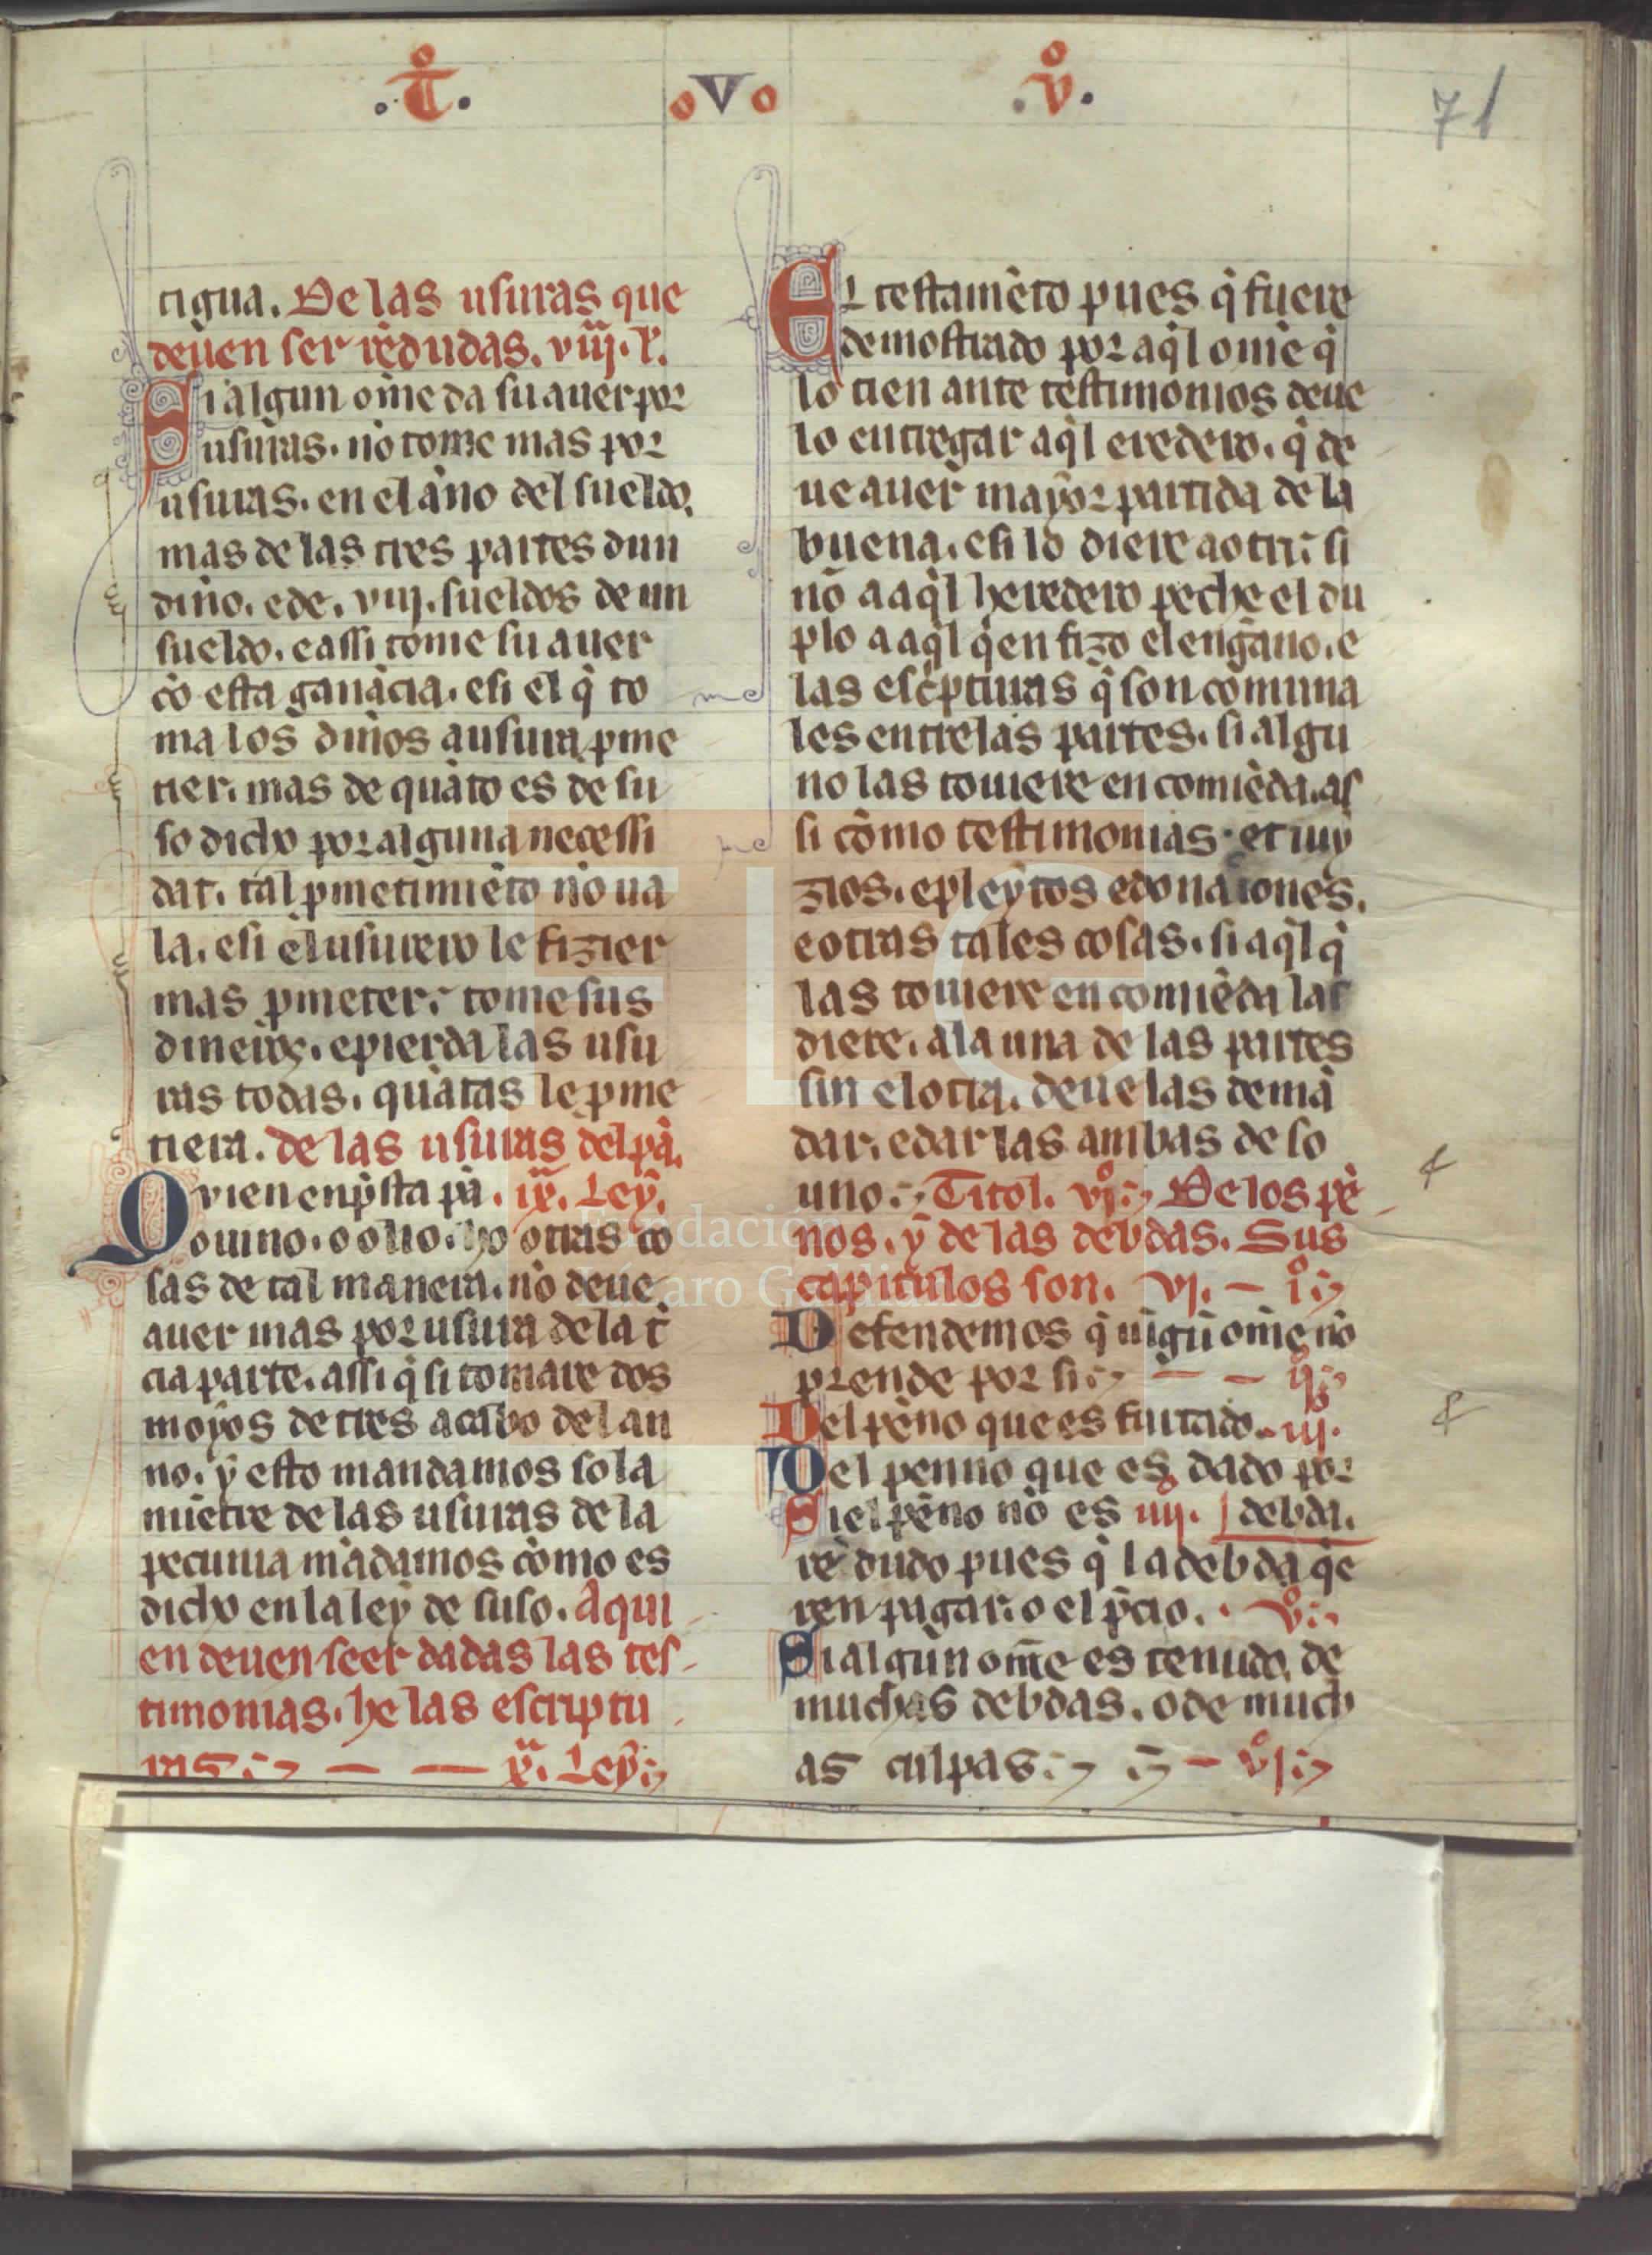 .T°. V .v°.
71
tigua. De las usuras que
deuen ser rẽdudas. viij. l'.
Si algun ome da su auer por
usuras. nõ tome mas por
usuras. en el año del sueldo.
mas de las tres partes dun
dino. e de. viij. sueldos de un
sueldo. e assi tome su auer
cõ esta ganãcia. e si el q̃ to
ma los dinos a usura, pme
tier. mas de quãto es de su
so dicho por alguna necessi
dat. tal pmetimiẽto nõ ua
la. e si el usurero le fizier
mas pmeter. tome sus
dineros. e pierda las usu
ras todas. quãtas le pme
tiera. de las usuras del pã.
Qvien enp̃sta pã. ix. Ley.
o uino. o olio. ho otras co
sas de tal manera. nõ deue
auer mas por usura de la t̃
cia parte. assi q̃ si tomare dos
moyos de tres a cabo del an
no. y esto mandamos sola
miẽtre de las usuras de la
pecunia mãdamos cõmo es
dicho en la ley de suso. A qui
en deuen seer dadas las tes
timonias. he las escriptu
ras. x. Ley
El testamẽto pues q̃ fuere
demostrado por aq̃l ome q̃
lo tien ante testimonios deue
lo entregar aq̃l eredero. q̃ de
ue auer mayor partida de la
buena. e si lo diere a otri. si
nõ a aq̃l heredero peche el du
plo a aq̃l q̃en fizo el engano. e
las esc̃pturas q̃ son comuna
les entre las partes. si algu
no las touiere en comiẽda. as
si cõmo testimonias. et iuy
zios. e pleytos e donaciones.
e otras tales cosas. si aq̃l q̃
las touiere en comiẽda las
diere. a la una de las partes
sin el otra. deue las demã
dar. e dar las ambas de so
uno. Titol. vj°. De los pẽ
nos. y de las debdas. Sus
capitulos son. vj. — j°
Defendemos q̃ nigũ ome nõ
prende por si — — ij°
Del pẽno que es furtado. iij.
Del penno que es dado por
Si el pẽno nõ es iiij. debda.
rẽdudo pues q̃ la debda q̃e
ren pagar. o el p̃cio. v°
Si algun ome es tenudo. de
muchas debdas. o de much
as culpas — vj°
FLG
Fundación
Lázaro Galdiano